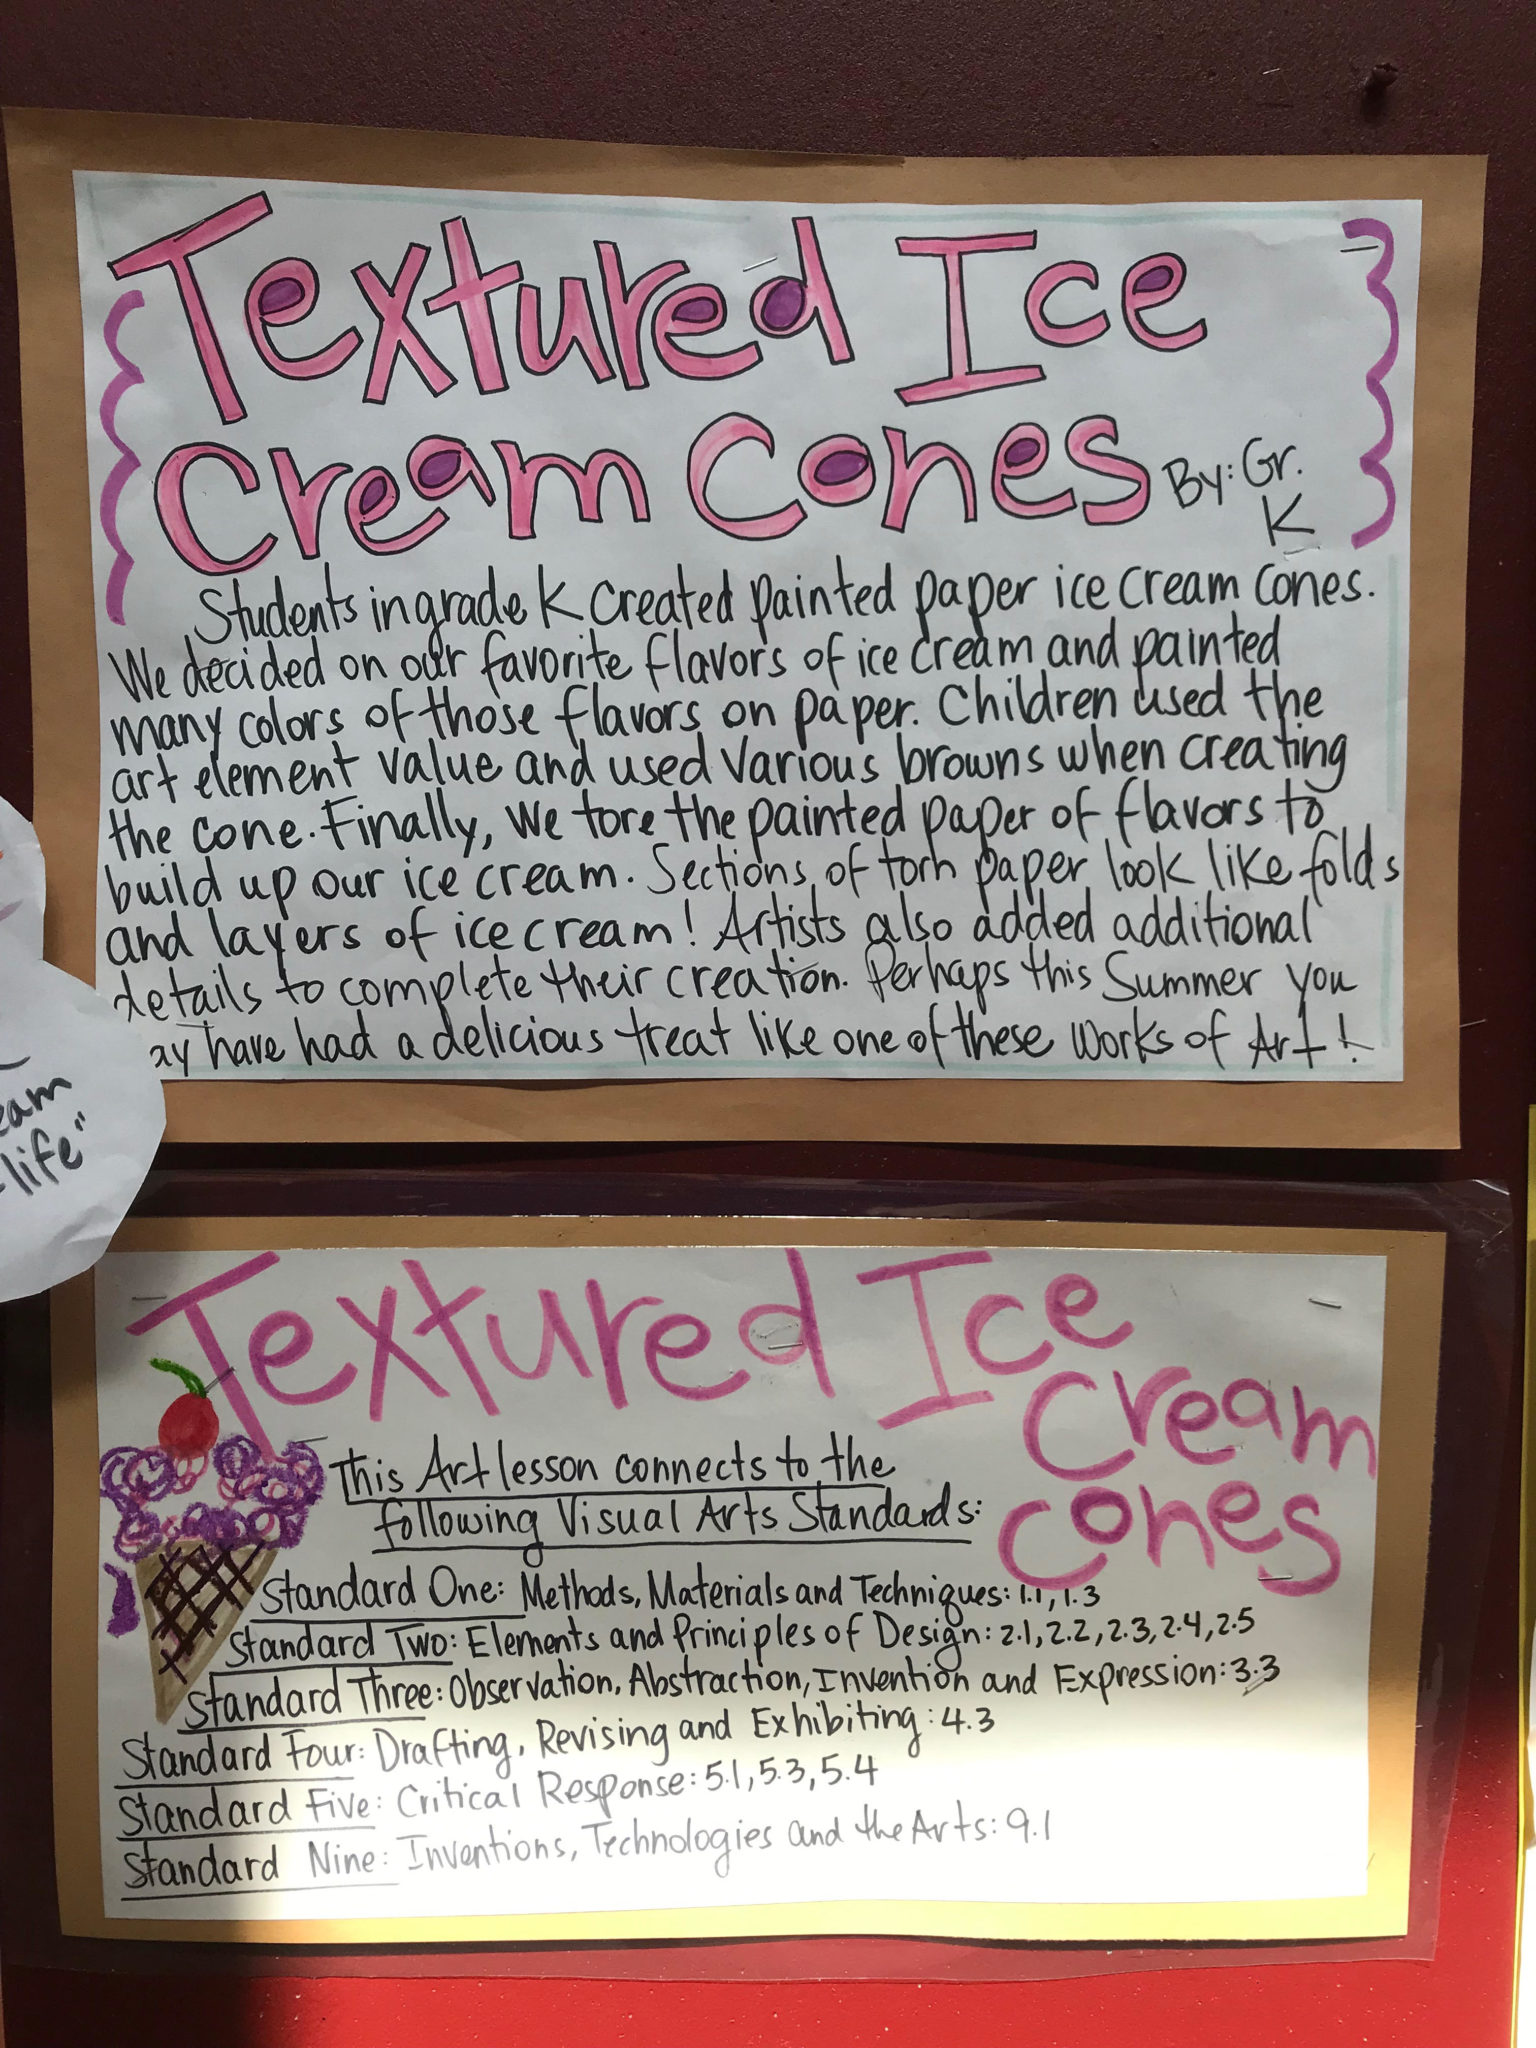 Textured Ice
Cream Cones By: Gr.
K
Students in grade K created painted paper ice cream cones.
We decided on our favorite flavors of ice cream and painted
many colors of those flavors on paper. Children used the
art element value and used various browns when creating
the cone. Finally, we tore the painted paper of flavors to
build up our ice cream. Sections of torn paper look like folds
and layers of ice cream! Artists also added additional
details to complete their creation. Perhaps this Summer you
ay have had a delicious treat like one of these Works of Art!
eam
life"
Textured Ice
Cream
Cones
This Art lesson connects to the
following Visual Arts Standards:
Standard One: Methods, Materials and Techniques: 1.1, 1.3
Standard Two: Elements and Principles of Design: 2.1, 2.2, 2.3, 2.4, 2.5
Standard Three: Observation, Abstraction, Invention and Expression: 3.3
Standard Four: Drafting, Revising and Exhibiting: 4.3
Standard Five: Critical Response: 5.1, 5.3, 5.4
Standard Nine: Inventions, Technologies and the Arts: 9.1